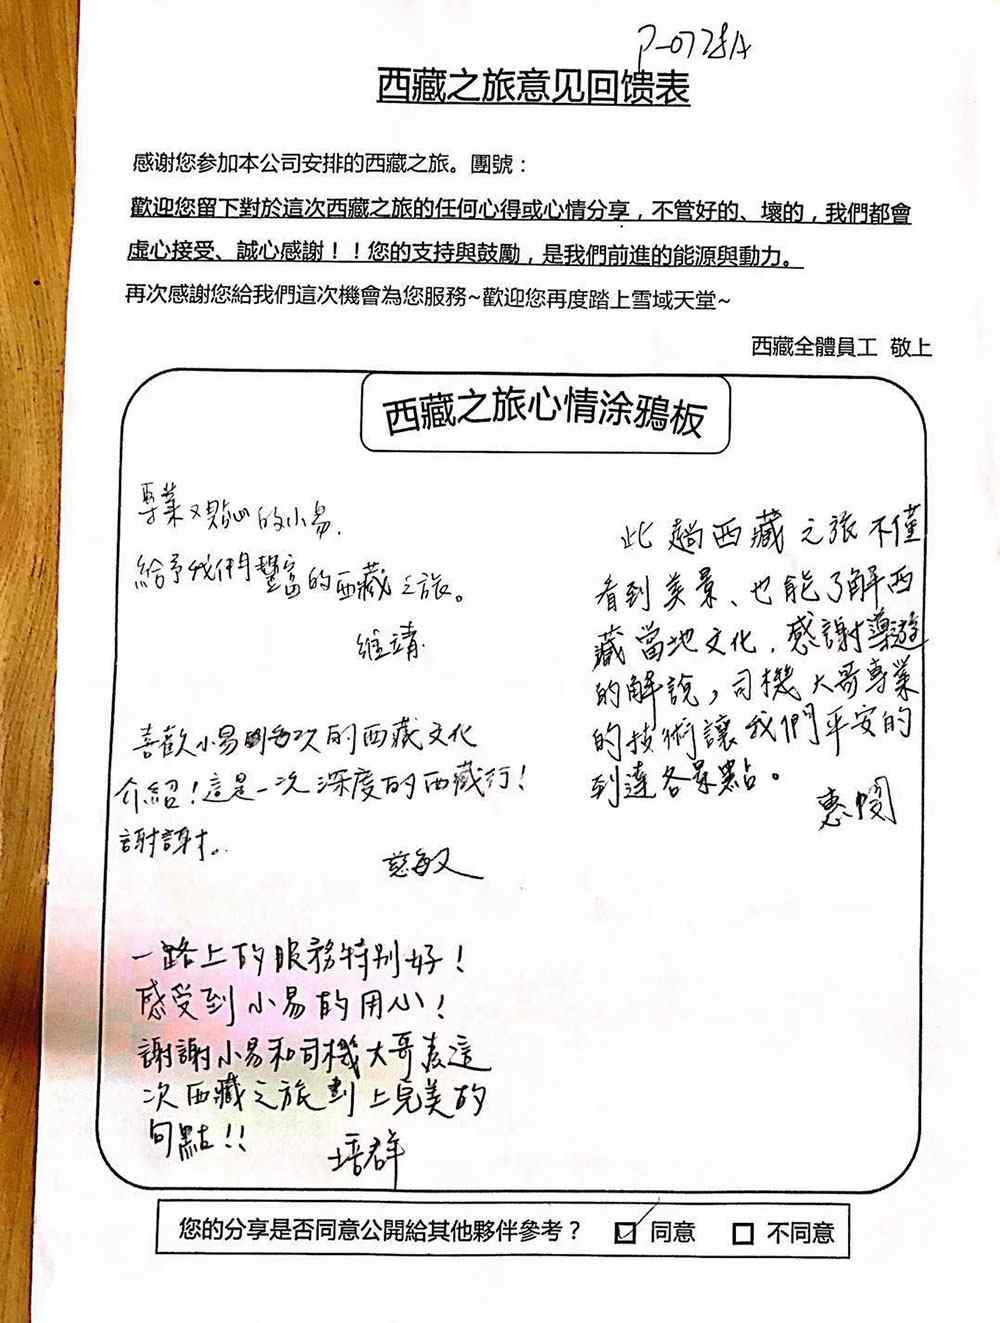 P-0728A
西藏之旅意见回馈表
感谢您参加本公司安排的西藏之旅。團號：
歡迎您留下對於這次西藏之旅的任何心得或心情分享，不管好的、壞的，我們都會
虛心接受、誠心感謝！！您的支持與鼓勵，是我們前進的能源與動力。
再次感謝您給我們這次機會為您服務~歡迎您再度踏上雪域天堂~
西藏全體員工 敬上
西藏之旅心情涂鴉板
專業又貼心的小易.
給予我們豐富的西藏之旅。
維靖
喜歡小易的西藏文化
介紹！這是一次深度的西藏行！
謝謝。
慈敏
一路上的服務特別好！
感受到小易的用心！
謝謝小易和司機大哥為這
次西藏之旅劃上完美的
句點!!
培群
此趟西藏之旅不僅
看到美景、也能了解西
藏當地文化，感謝導遊
的解說，司機大哥專業
的技術讓我們平安的
到達各景點。
惠
您的分享是否同意公開給其他夥伴參考？ ☑ 同意 □ 不同意